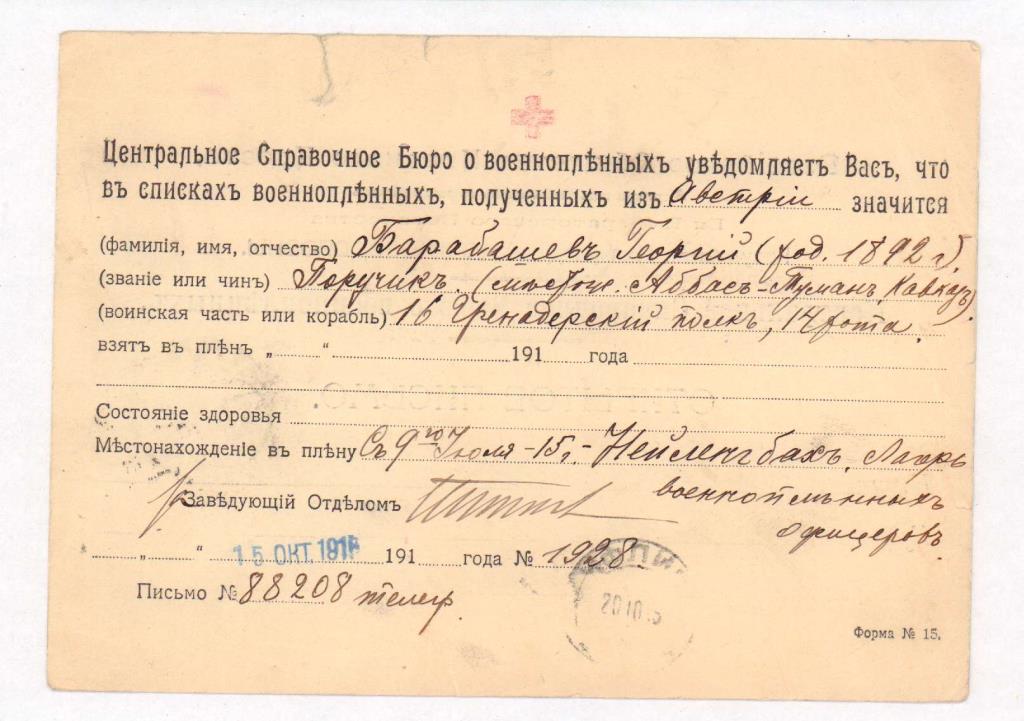 Центральное Справочное Бюро о военноплѣнныхъ увѣдомляетъ Васъ, что
въ спискахъ военноплѣнныхъ, полученныхъ изъ Австріи значится
(фамилія, имя, отчество) Барабашевъ Георгій (род. 1892 г.),
(званіе или чинъ) Поручикъ. Аббасъ-Туманъ, Кавказъ).
(воинская часть или корабль) 16 Гренадерскій полкъ, 14 рота.
взятъ въ плѣнъ „ “ 191 года
Состояніе здоровья
Мѣстонахожденіе въ плѣну Съ 9го Іюля -15 г. - Нейленгбахъ. Лагерь
военноплѣнныхъ
офицеровъ.
Завѣдующій Отдѣломъ
„ “ 15 ОКТ. 1915 191 года № 1928.
Письмо № 88208 телегр.
20 10 15
Форма № 15.